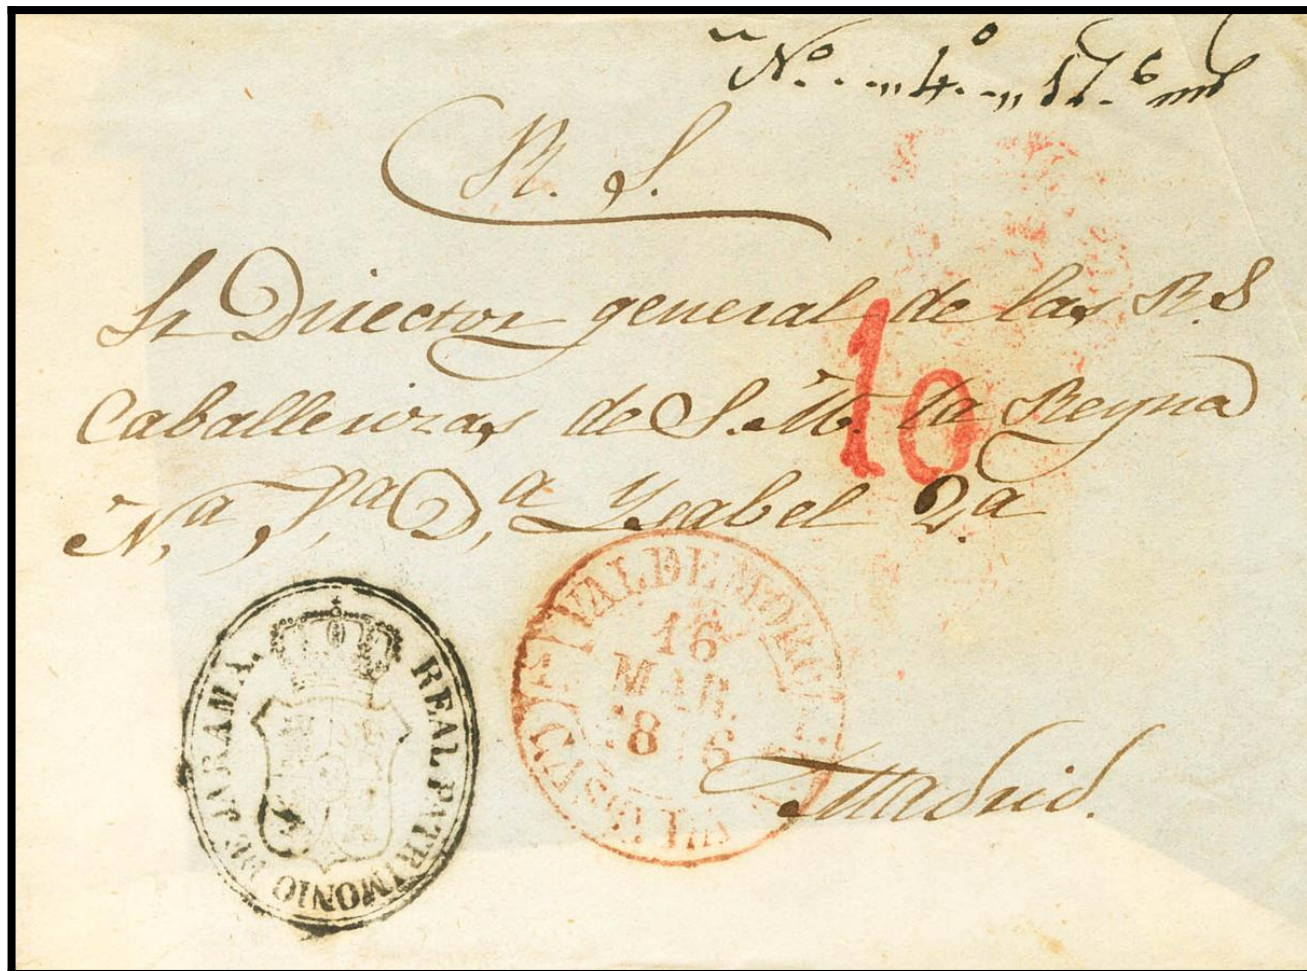 Nº 4º
R. S.
Sr Director general de las R.S
Caballerizas de S.M. la Reyna
N.ª S.ª D.ª Ysabel 2.ª
10
REAL PATRIMONIO DE JARAMA.
VALDEMORO
16
MAR.
Madrid.